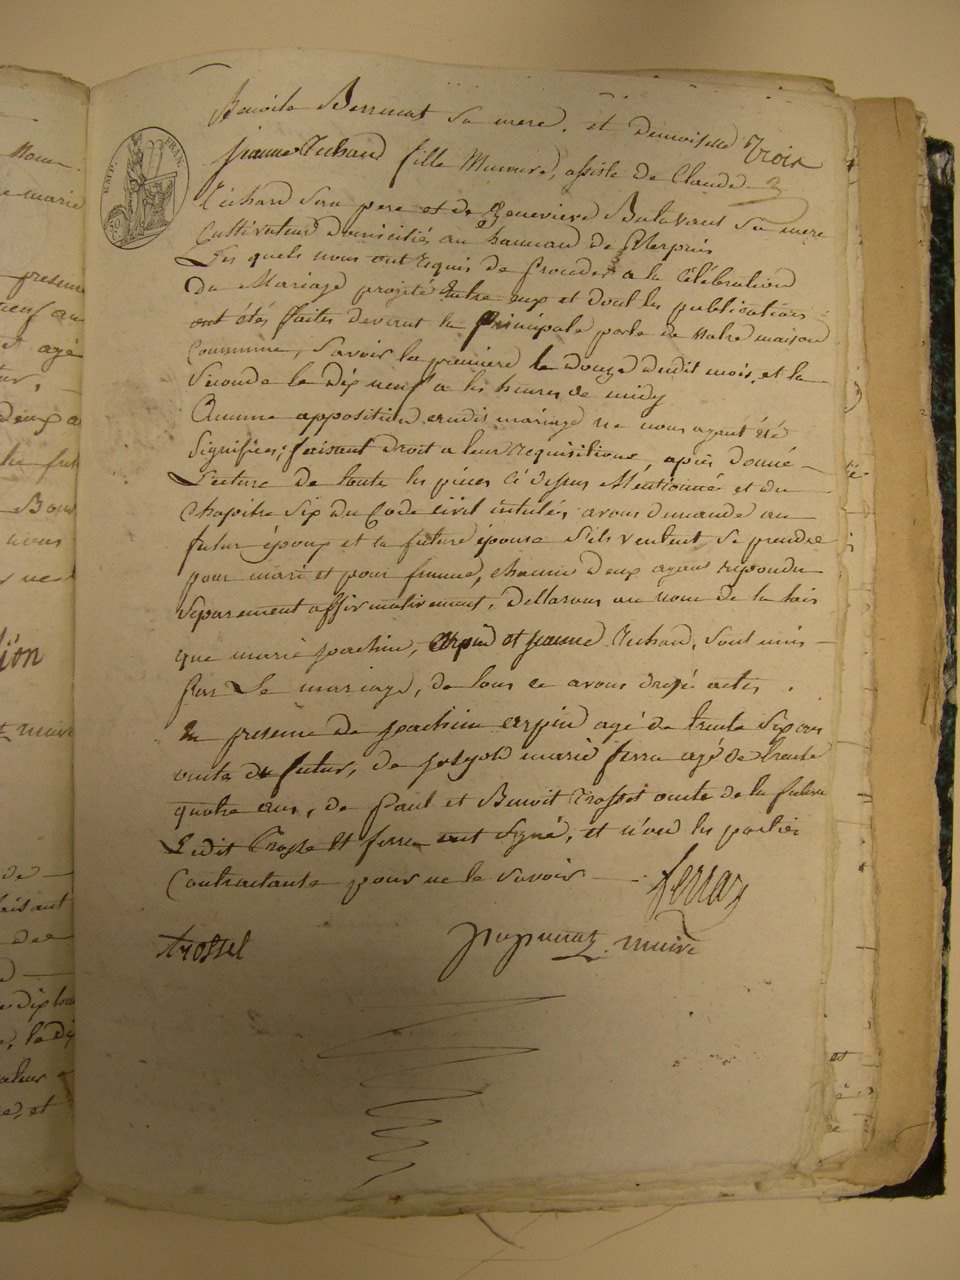 Benoite Berrenat sa mere, et demoiselle Trois
jeanne Richard fille Mineure, assisté de Claude 3
EMP. FRAN.
Richard son pere et de Genevieve sa mere
Cultivateurs domiciliés au hameau de
Les quels nous ont requis de proceder a la Célébration
du Mariage projeté Entre eux et dont les publications
ont étés faites devant la principale porte de Notre maison
Commune, Savoir la premiere le douze dudit mois, et la
Seconde le dix neuf a les heures de midy
Aucune opposition audit mariage ne nous ayant été
Signifiée; faisant droit a leur Requisitions, après donné
Lecture de toute les pieces ci dessus Mentionné et du
Chapitre Six du Code Civil intulés, avons demandé au
futur époux et la future épouse S'ils veulent se prendre
pour mari et pour femme, chacun d'eux ayant repondu
Separement affirmativement, Dellarons au nom de la lois
que marie joachim, Arpin et jeanne Richard, Sont unis
par Le mariage, de tous ce avons drésé acte
En presence de joachim arpin agé de trente Six ans
oncle du futur, de joseph marie ferra agé de trente
quatre ans, de Paul et Benoit Trossel oncle de la future
Ledit Trosse et ferra ont Signé, et n'on les partie
Contractante pour ne le Savoir
ferraz
trossel
maire